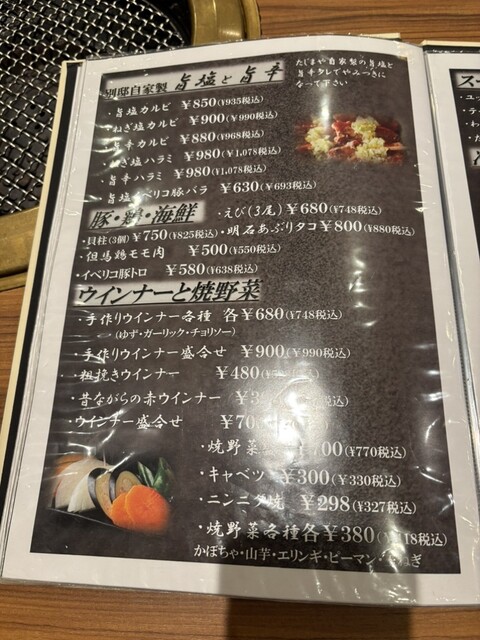 別邸自家製 旨塩と旨辛
たじまや自家製の旨塩と
旨辛タレでやみつきに
なって下さい
・旨塩カルビ ¥850(¥935税込)
・ねぎ塩カルビ ¥900(¥990税込)
・旨辛カルビ ¥880(¥968税込)
・ねぎ塩ハラミ ¥980(¥1,078税込)
・旨辛ハラミ ¥980(¥1,078税込)
・旨塩イベリコ豚バラ ¥630(¥693税込)
豚・鶏・海鮮
・えび(3尾) ¥680(¥748税込)
・貝柱(3個) ¥750(¥825税込)・明石あぶりタコ¥800(¥880税込)
・但馬鶏モモ肉 ¥500(¥550税込)
・イベリコ豚トロ ¥580(¥638税込)
ウインナーと焼野菜
・手作りウインナー各種 各¥680(¥748税込)
(ゆず・ガーリック・チョリソー)
・手作りウインナー盛合せ ¥900(¥990税込)
・粗挽きウインナー ¥480(税込)
・昔ながらの赤ウインナー ¥3 税込)
・ウインナー盛合せ ¥70
・焼野菜 ¥700(¥770税込)
・キャベツ ¥300(¥330税込)
・ニンニク焼 ¥298(¥327税込)
・焼野菜各種各¥380(¥418税込)
かぼちゃ・山芋・エリンギ・ピーマン・ねぎ
ス